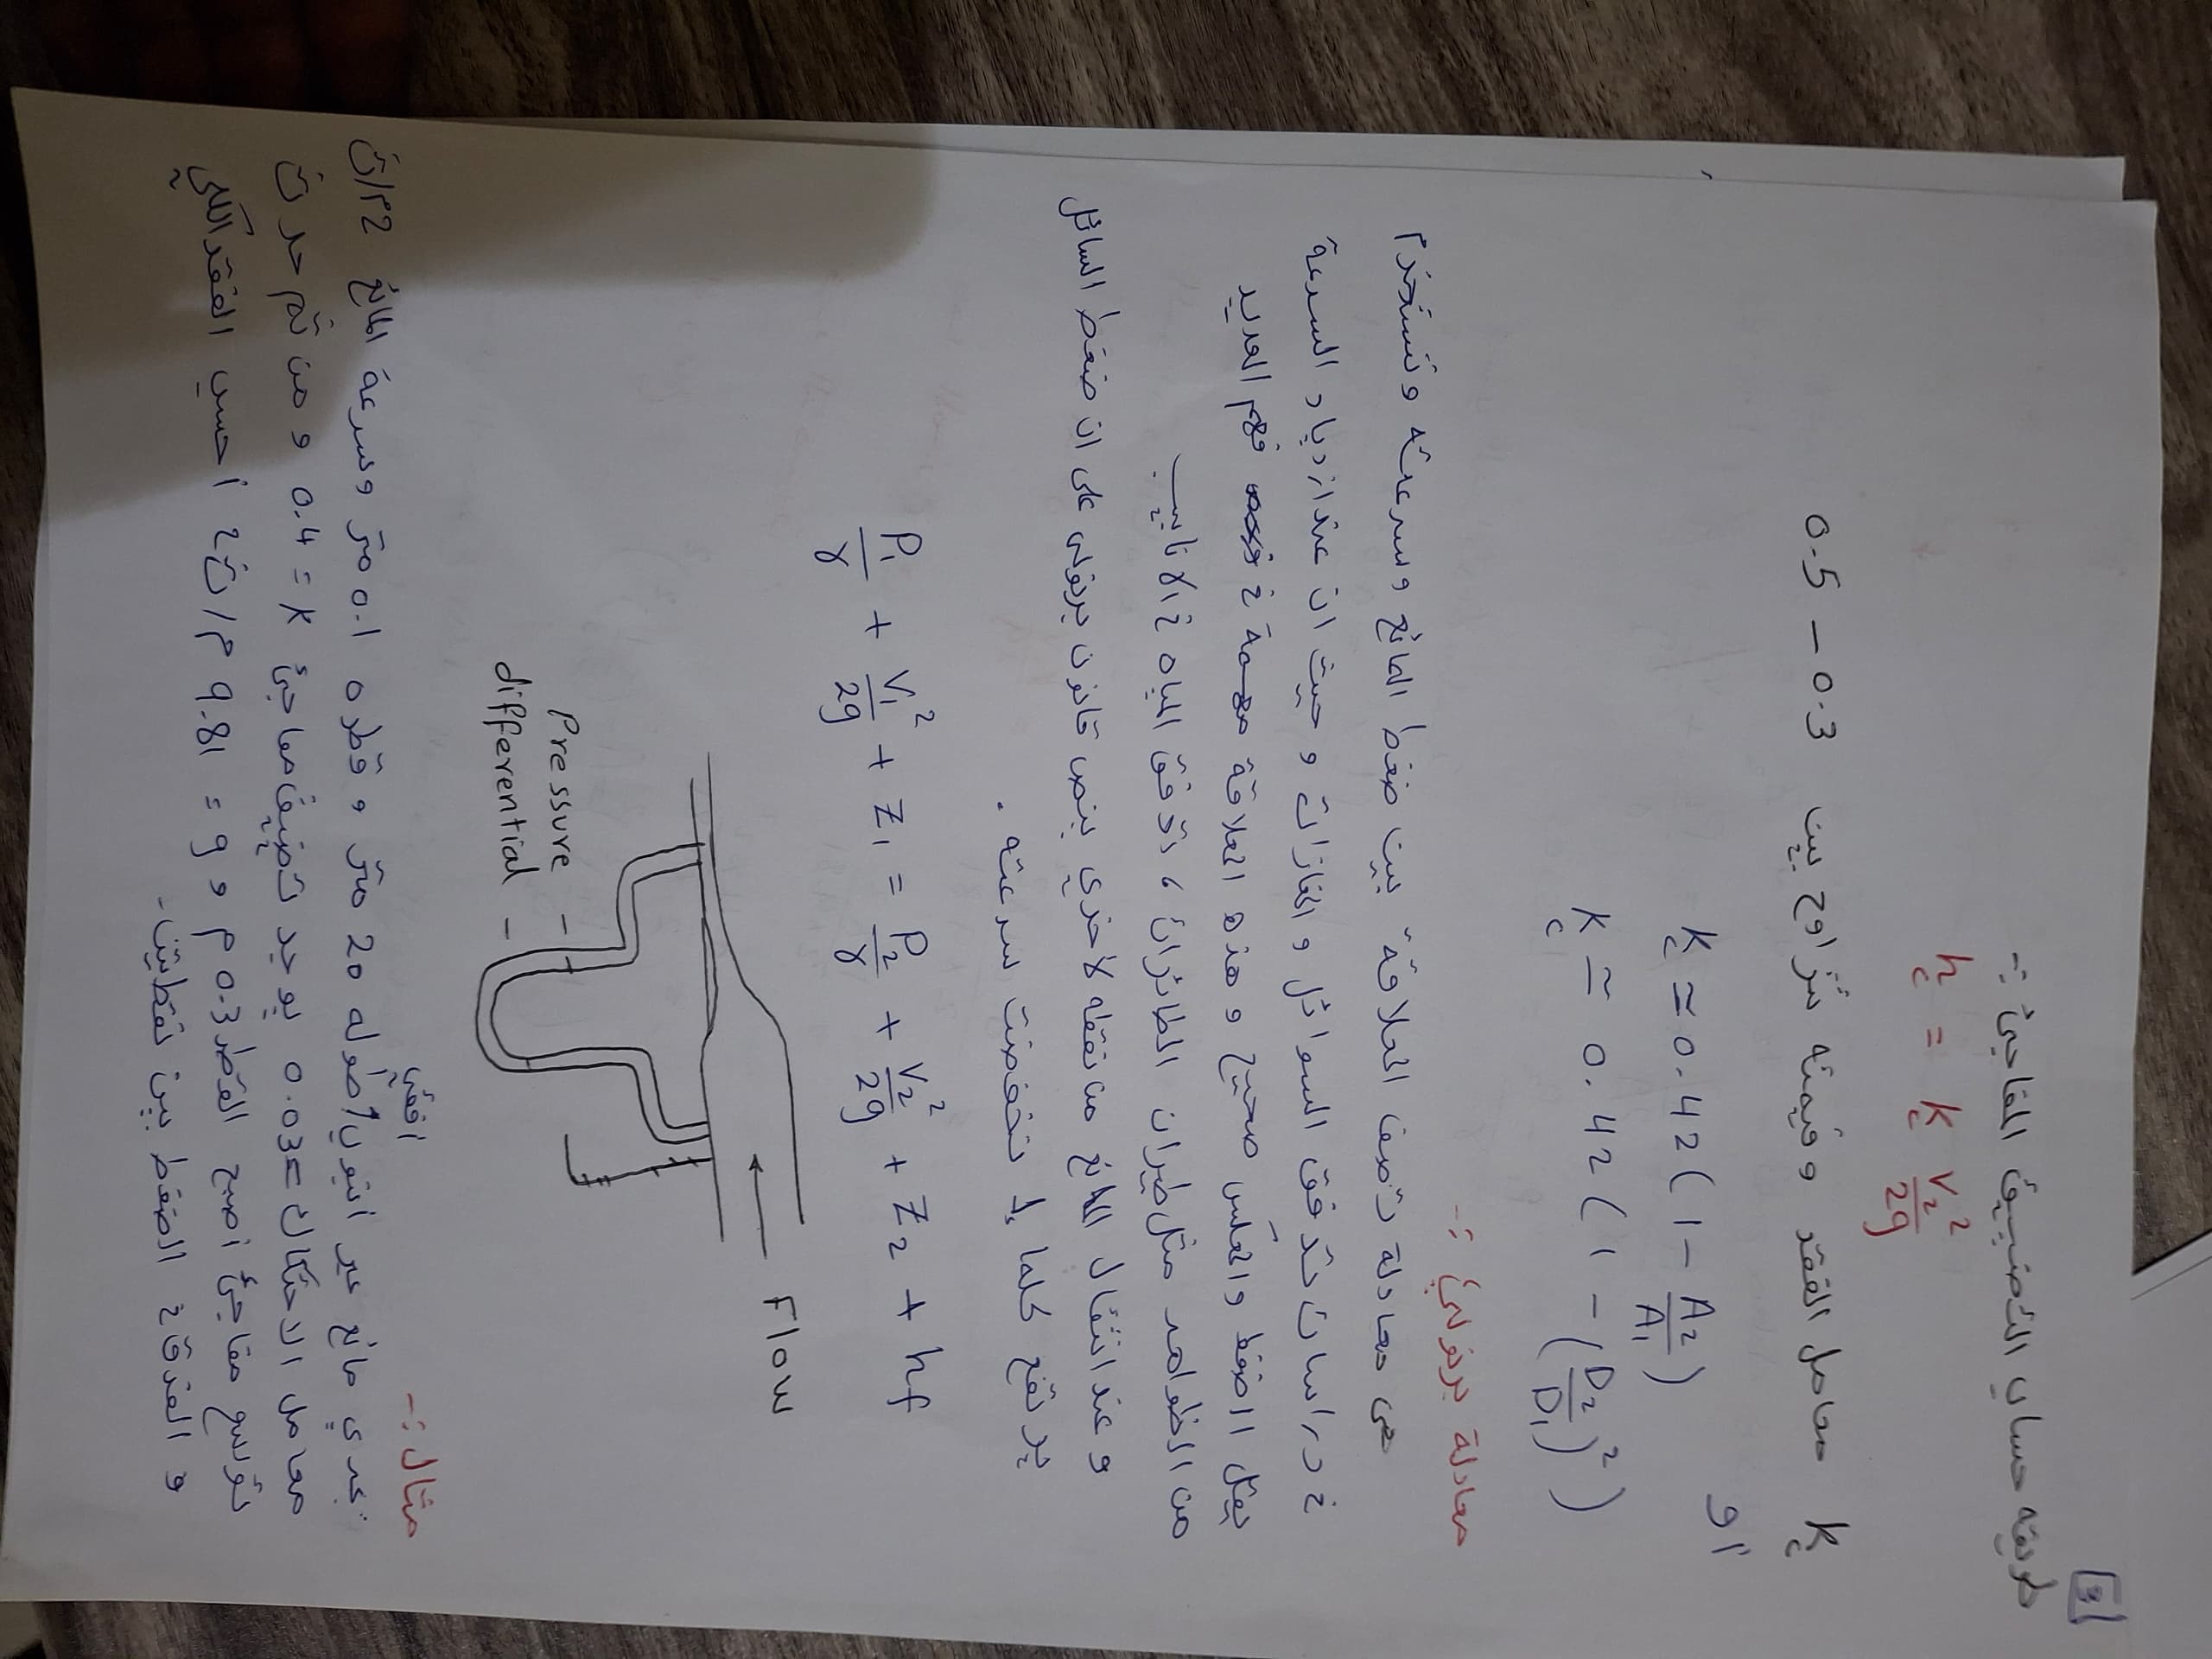 3
طريقه حساب التضييق المفاجئ :-
hc = Kc V2² / 2g
Kc معامل الفقد وقيمته تتراوح بين 0.3 – 0.5
Kc ≃ 0.42 ( 1 – A2 / A1 ) او
Kc ≃ 0.42 ( 1 – ( D2 / D1 )² )
معادلة برنولي :-
هي معادلة تصف العلاقة بين ضغط المائع وسرعته وتستخدم
في دراسات تدفق السوائل والغازات وحيث ان عند ازدياد السرعة
يقل الضغط والعكس صحيح وهذه العلاقة مهمة في فهم العديد
من الظواهر مثل طيران الطائرات ، تدفق المياه في الانابيب.
وعند انتقال المائع من نقطه لاخرى ينص قانون برنولي على ان ضغط السائل
يرتفع كلما انخفضت سرعته .
P1 / γ + V1² / 2g + Z1 = P2 / γ + V2² / 2g + Z2 + hf
Flow
Pressure –
differential –
مثال :-
يجري مائع عبر انبوب افقي طوله 20 متر و قطره 0.1 متر وسرعة المائع 2 م/ث
معامل الاحتكاك = 0.03 يوجد تضييق مفاجئ K = 0.4 و من ثم حدث
توسع مفاجئ اصبح القطر 0.3 م و g = 9.81 م/ث2 احسب الفقد الكلي
و الفرق في الضغط بين نقطتين.